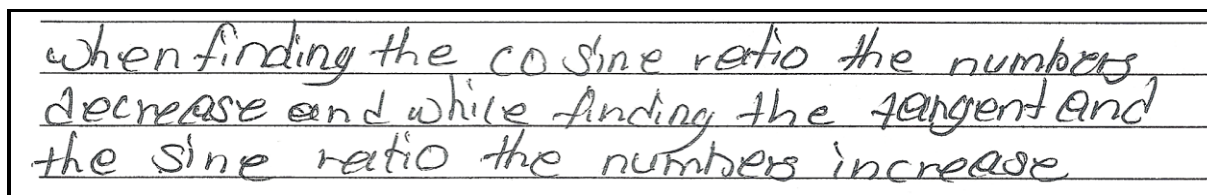 when finding the cosine ratio the numbers
decrease and while finding the tangent and
the sine ratio the numbers increase